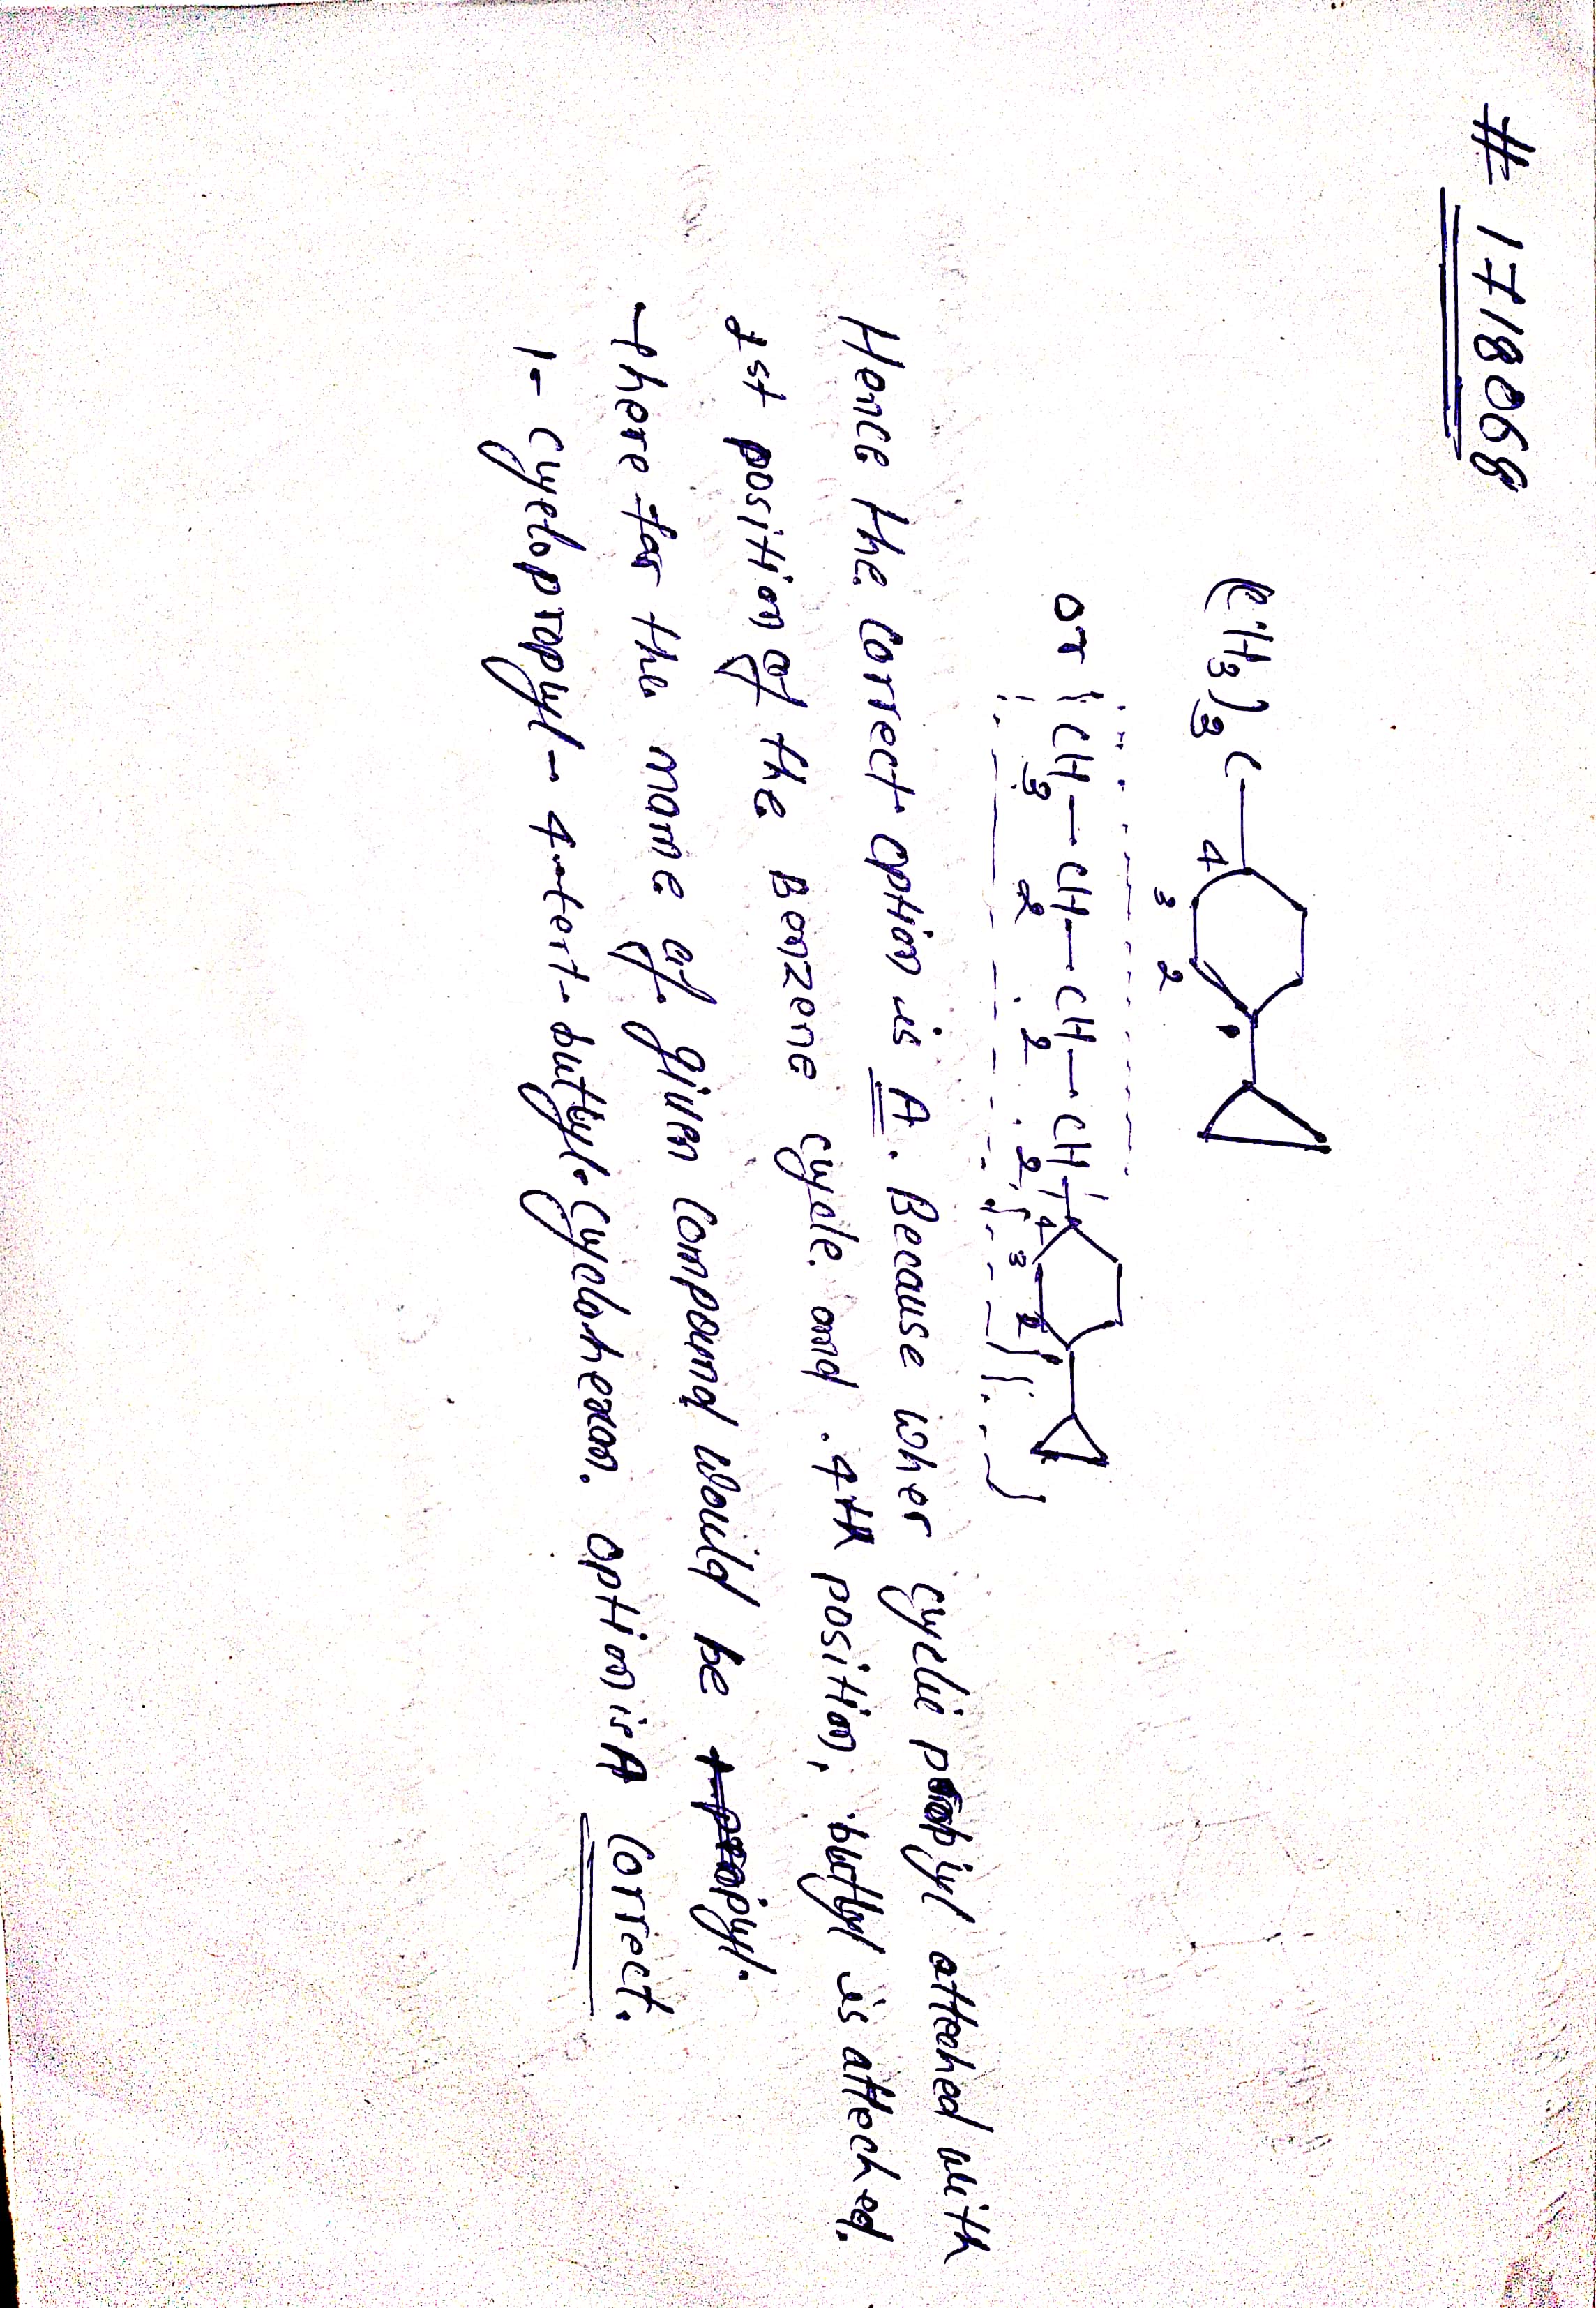 # 1718068
(CH3)3 C 4
3 2
or CH3 — CH2 — CH2 — CH2 4 3 2 1
Hence the correct option is A. Because wher cyclic propyl atteahed with
1st position of the Benzene cycle and 4th position, buttyl is atteched.
there for the name of given compound would be
1- cyclopropyl - 4-tert-buttyl-cyclohexan. option is A correct.